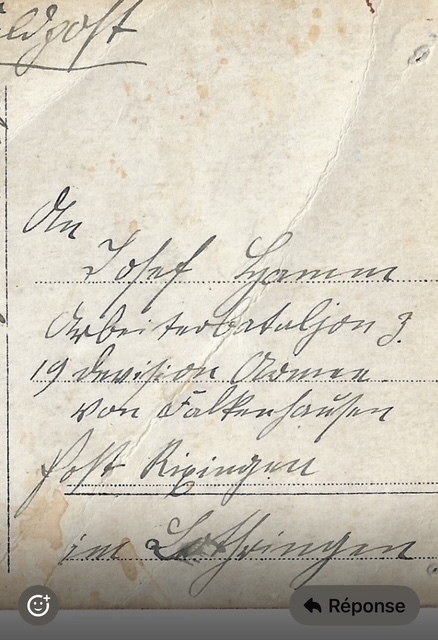 Feldpost
An
Josef Hamm
Arbeiterbataljon 3.
19 devision Armee
von Falkenhausen
Post Rixingen
im Lothringen
Réponse